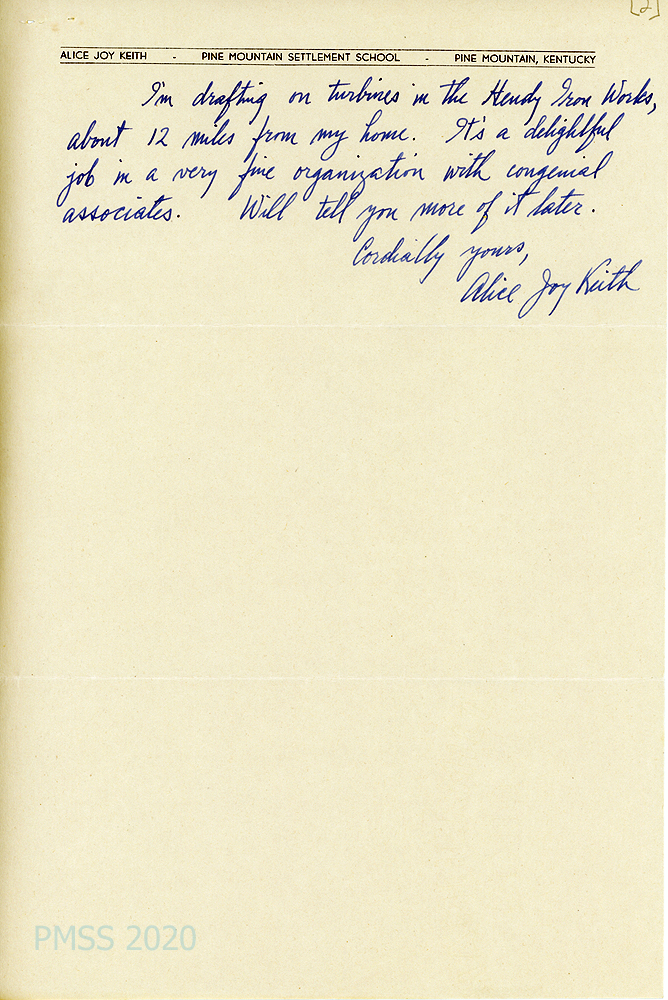 [2]
ALICE JOY KEITH - PINE MOUNTAIN SETTLEMENT SCHOOL - PINE MOUNTAIN, KENTUCKY
I'm drafting on turbines in the Hendy Iron Works,
about 12 miles from my home. It's a delightful
job in a very fine organization with congenial
associates. Will tell you more of it later.
Cordially yours,
Alice Joy Keith
PMSS 2020